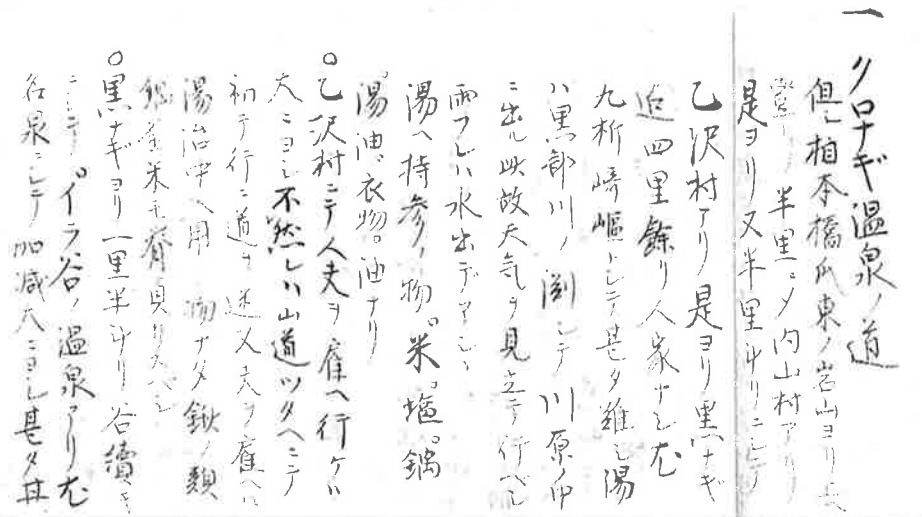 一 クロナギ温泉ノ道
但シ相本橋爪東ノ岩山ヨリ
半里 内山村アリ
是ヨリ又半里斗リニシテ
乙沢村アリ是ヨリ黒ナギ
迠四里餘リ人家ナシ尤
九折崎嶇トシテ甚タ難シ湯
ハ黒部川ノ 川原ノ中
ニ出ル此故天気ヲ見立テ行ベシ
雨フレハ水出デアシシ
湯ヘ持参ノ物。米。塩。鍋
湯油。衣物。油ナリ
○乙沢村ニテ人夫ヲ雇ヘ行ケハ
大ニヨシ不然レハ山道ツタヘニテ
初テ行ニ道ヲ迷又夫ヲ雇ヘハ
湯治中ヘ用 物ナタ鍬ノ類
米モ背負
○黒ナギヨリ一里半斗リ谷續キ
ニシテ イラ谷ノ温泉アリ尤
名泉ニシテ加減大ニヨシ甚タ其